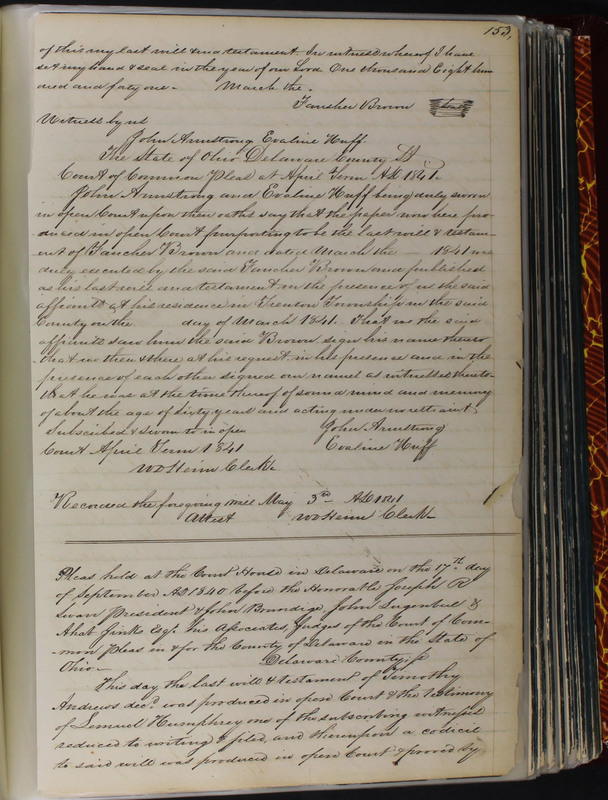 153,
of this my last will & and testament. In witness whereof I have
set my hand & seal in the year of our Lord One thousand Eight hun
dred and forty one - March the.
Fancher Brown seal
Witness by us
John Armstrong Evaline Huff
The State of Ohio Delaware County Ss
Court of Common Pleas at April Term AD 1841
John Armstrong and Evaline Huff being duly sworn
in open Court upon their oaths say that the paper now here pro-
duced in open Court purporting to be the last will & testam-
ent of Fancher Brown and dated March the — 1841 was
duly executed by the said Fancher Brown and published
as his last will and testament in the presence of us the said
affiants at his residence in Trenton Township in the said
County on the day of March 1841. That we the said
affiants saw him the said Brown sign his name thereto
that we then & there at his request in his presence and in the
presence of each other signed our names as witnesses thereto-
that he was at the time thereof of sound mind and memory
of about the age of sixty years and acting under no restraint.
Subscribed & sworn to in open John Armstrong
Court April Term 1841 Evaline Huff
Clerk
Recorded the foregoing will May 3rd AD 1841
Attest Clerk
Pleas held at the Court House in Delaware on the 17th day
of September AD 1840 before the Honorable Joseph R
Swan President & John Brundige, John Lugenbeel &
Ahab Jinks Esqs. his Associates, Judges of the Court of Com-
mon Pleas in & for the County of Delaware in the State of
Ohio— Delaware County, ss
This day the last will & testament of Timothy
Andrews decd. was produced in open Court & the testimony
of Lemuel Humphrey one of the subscribing witnesses
reduced to writing & filed, and thereupon a codicil
to said will was produced in open Court & proved by